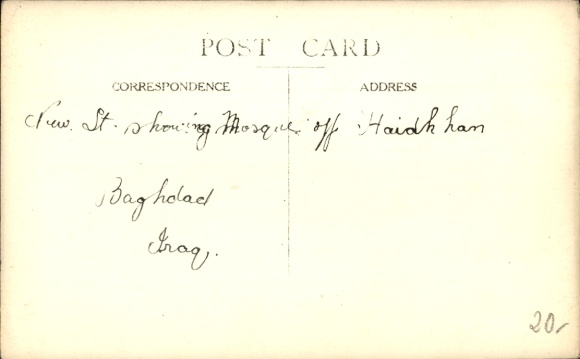 POST CARD
CORRESPONDENCE
ADDRESS
New. St. showing Mosque off Haidh han
Baghdad
Iraq.
20,-